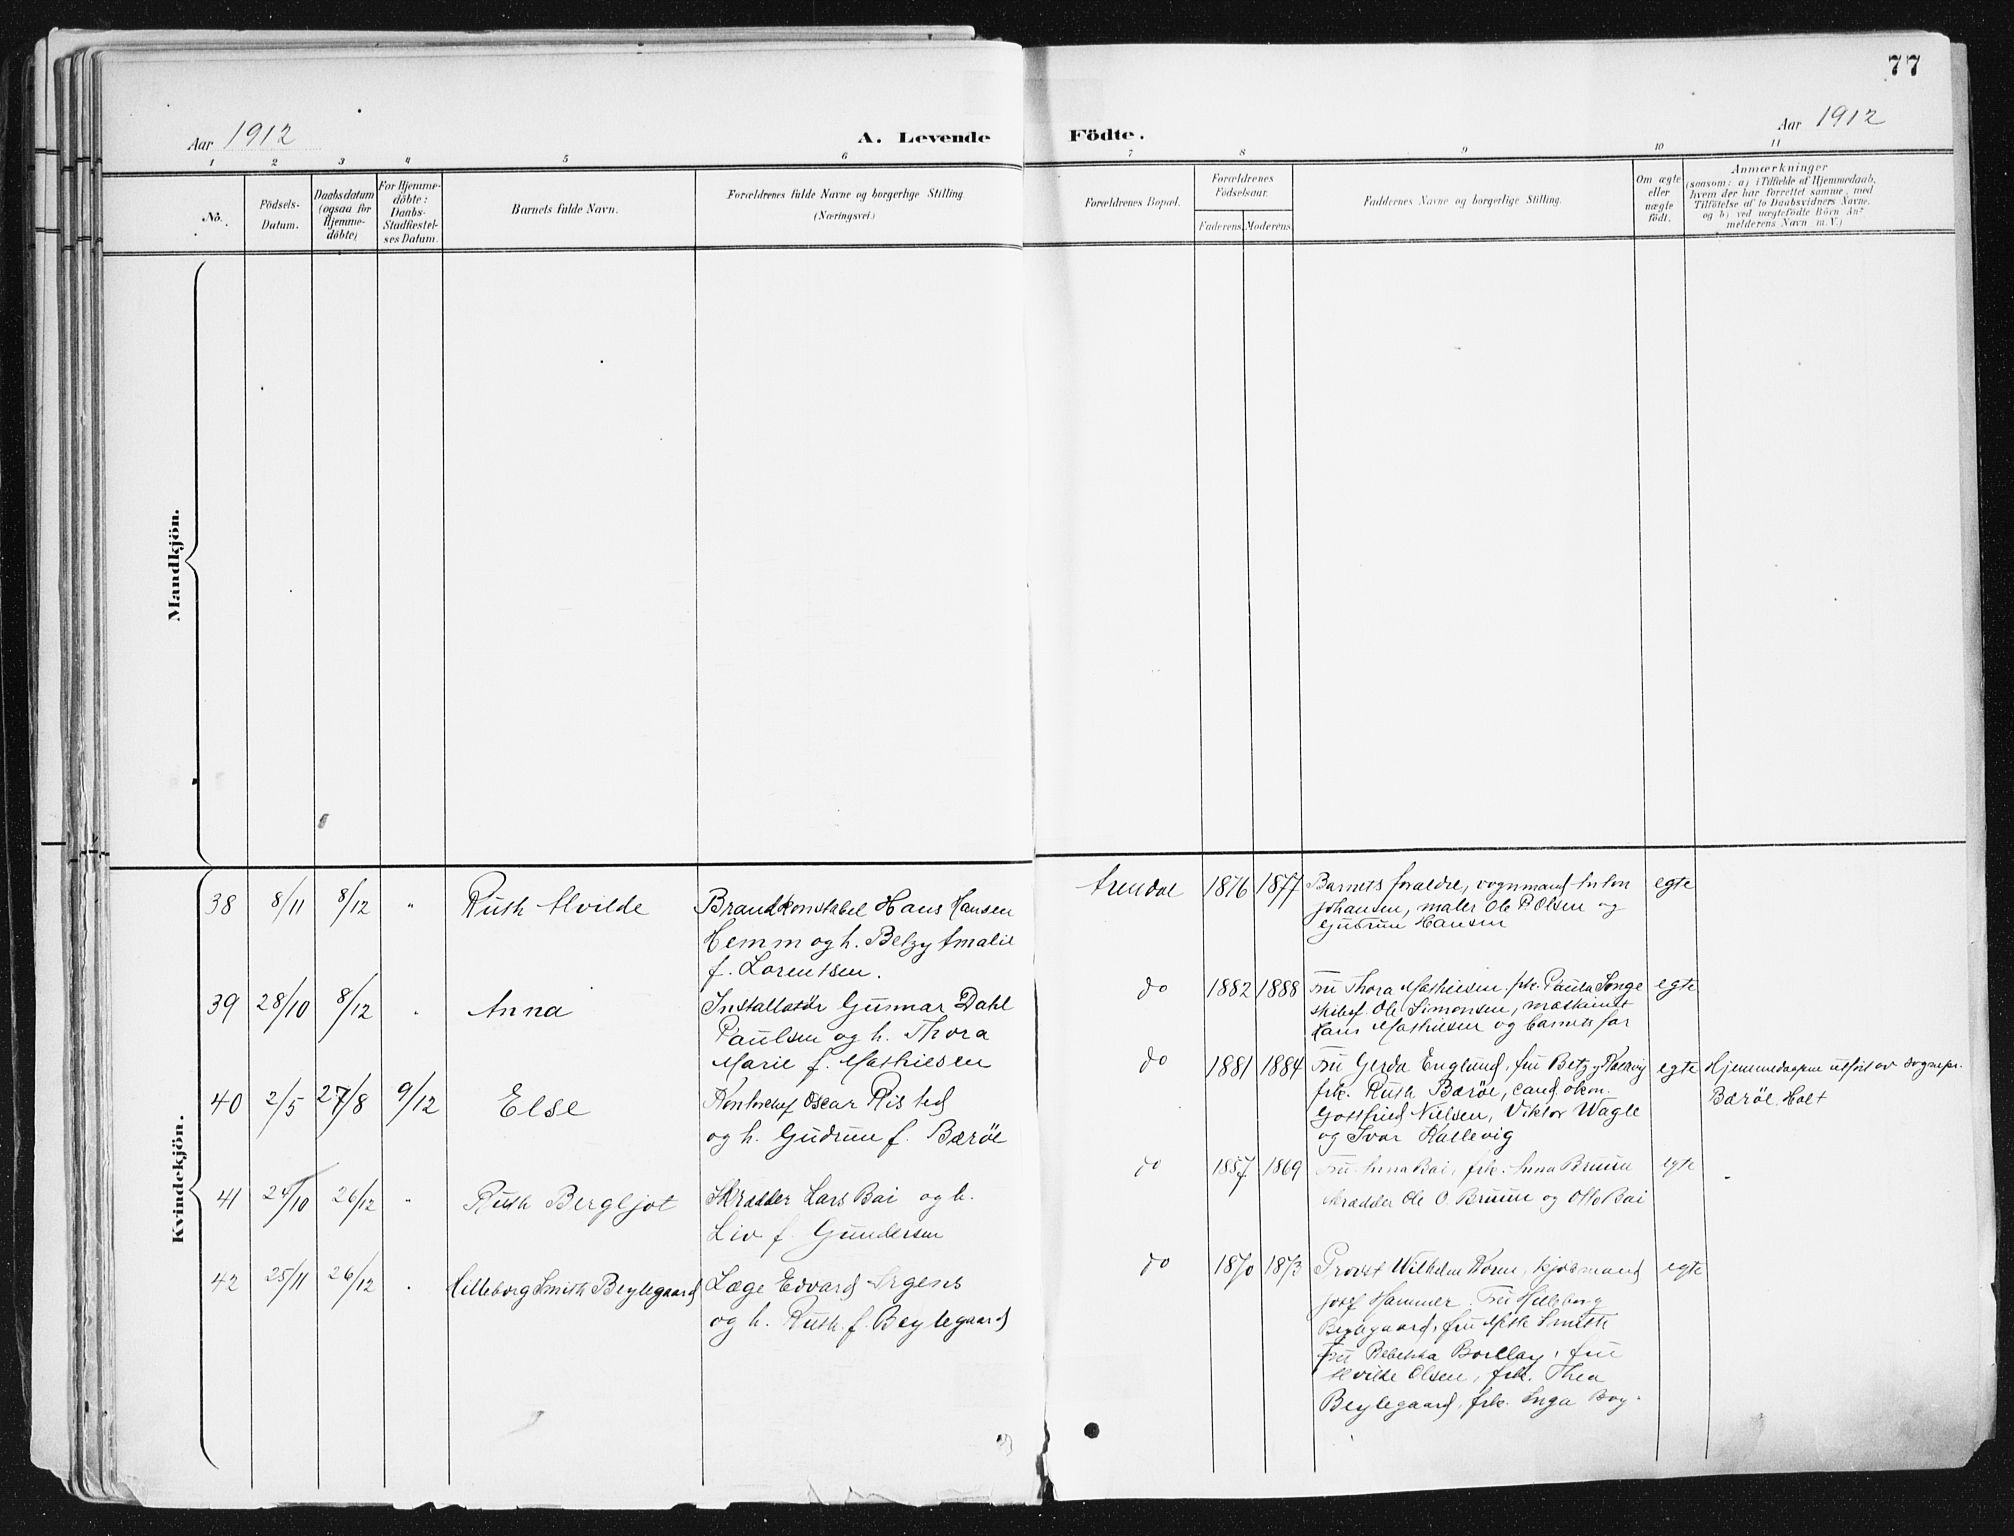 77
Aar 1912
A. Levende Födte.
Aar 1912
1 2 3 4 5 6 7 8 9 10 11
Nò.
Födsels-Datum.
Daabsdatum (ogsaa for Hjemmedöbte)
For Hjemmedöbte: Daabs-Stadfæstelses Datum.
Barnets fulde Navn.
Forældrenes fulde Navne og borgerlige Stilling (Næringsvei)
Forældrenes Bopæl.
Forældrenes Födselsaar.
Faderens. Moderens.
Faddernes Navne og borgerlige Stilling.
Om ægte eller uægte födt.
Anmærkninger
(saasom: a) i Tilfælde af Hjemmedaab,
hvem der har forrettet samme, med
Tilföielse af to Daabsvidners Navne.
og b) ved uægtefödte Börn An-
melderens Navn m.V.)
Mandkjön.
Kvindekjön.
38 8/11 8/12 " Ruth Alvilde
Brandkonstabel Hans Hansen
Hemm og h. Betzy Amalie
f. Lorentsen.
Arendal 1876 1877
Barnets foraldre, vognmand Anton
Johansen, maler Ole P. Olsen og
Gudrun Hansen
egte
39 28/10 8/12 " Anna
Installatør Gunnar Dahl
Paulsen og h. Thora
Marie f. Mathiesen
do 1882 1888
Fru Thora Mathiesen, frk. Paula Songe
skibsf. Ole Simonsen, maskinist
Hans Mathiesen og barnets far
egte
40 2/5 27/8 9/12 Else
Kontorchef Oscar Risted
og h. Gudrun f. Bærøe
do 1881 1884
Fru Gerda Englund, fru Betzy Kallevig
frk. Ruth Bærøe, cand. økon.
Gottfried Nielsen, Viktor Wagle
og Ivar Kallevig
egte
Hjemmedaapen utført av sognepr.
Bærøe, Holt
41 24/10 26/12 " Ruth Bergljot
Skrædder Lars Bai og h.
Liv f. Gundersen
do 1857 1869
Fru Anna Bai, frk. Anna Bruun
skrædder Ole O. Bruun og Otto Bai
egte
42 25/11 26/12 " Hilleborg Smith Beylegaard
Læge Edvard Irgens
og h. Ruth f. Beylegaard
do 1870 1873
Provst Wilhelm Koren, kjøbmand
Josef Hammer. Fru Hilleborg
Beylegaard, fru Smith
Fru Rebekka Boellay, fru
Alvilde Olsen, frk. Thea
Beylegaard, frk. Inga Boy-
egte